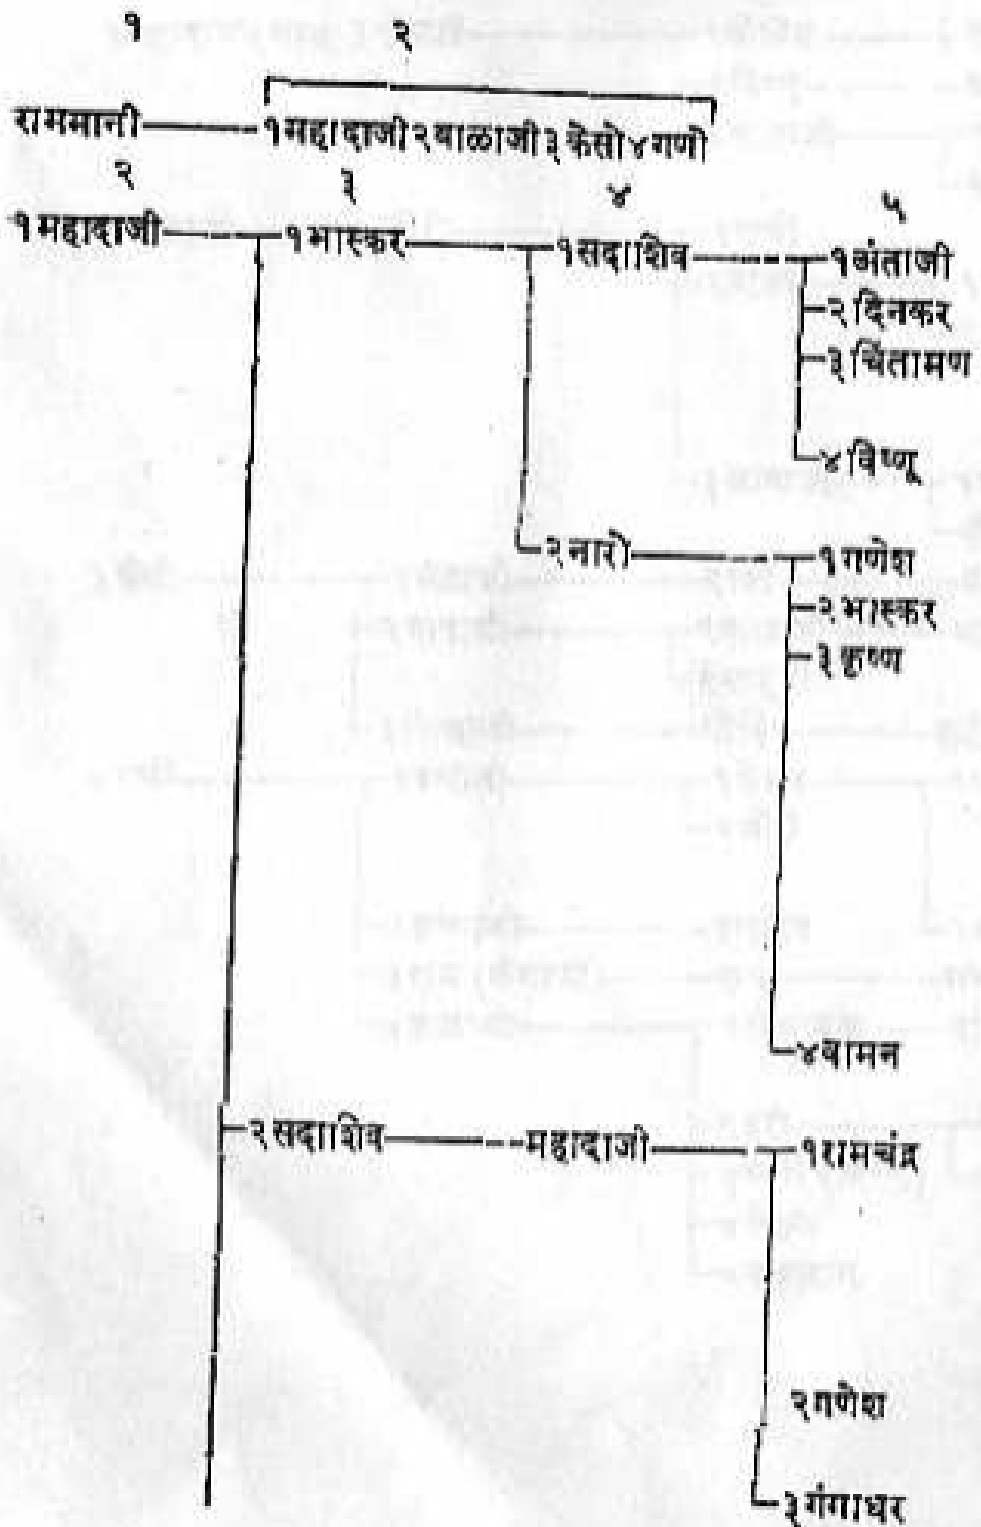 १ २
राममानी १महादाजी २बाळाजी ३केसो ४गणो
२ ३ ४ ५
१महादाजी १भास्कर १सदाशिव १अंताजी
२दिनकर
३चिंतामण
४विष्णू
२नारो १गणेश
२भास्कर
३कृष्ण
४वामन
२सदाशिव महादाजी १रामचंद्र
२गणेश
३गंगाधर